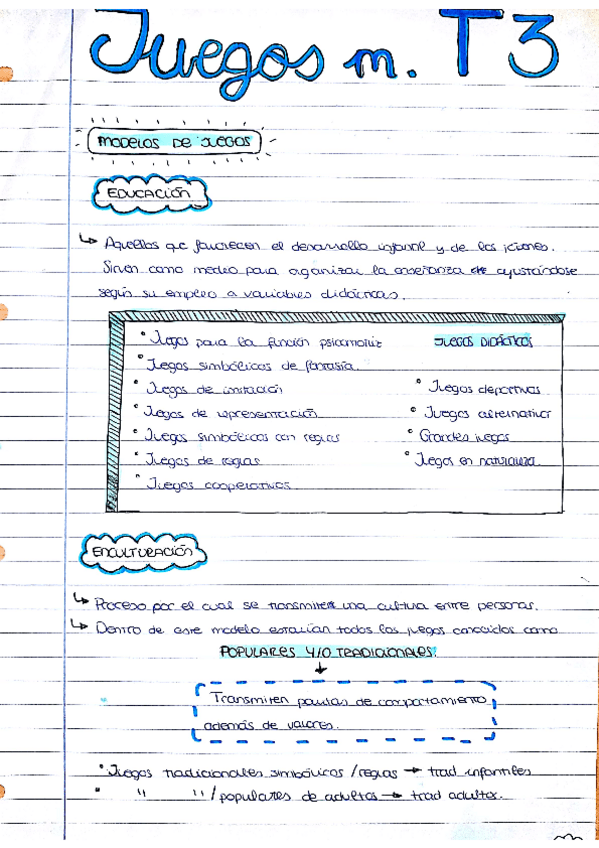 Juegos m. T3
MODELOS DE JUEGOS
EDUCACIÓN
↳ Aquellos que favorecen el desarrollo infantil y de los jóvenes.
Sirven como medio para organizar la enseñanza ajustándose
según su empleo a variables didácticas.
• Juegos para la función psicomotriz
JUEGOS DIDÁCTICOS
• Juegos simbólicos de fantasía.
• Juegos de imitación
• Juegos deportivos
• Juegos de representación
• Juegos alternativos
• Juegos simbólicos con reglas
• Grandes juegos
• Juegos de reglas
• Juegos en naturaleza
• Juegos cooperativos
ENCULTURACIÓN
↳ Proceso por el cual se transmiten una cultura entre personas.
↳ Dentro de este modelo estarían todos los juegos conocidos como
POPULARES Y/O TRADICIONALES.
↓
Transmiten pautas de comportamiento
además de valores.
• Juegos tradicionales simbólicos / reglas → trad infantiles
• " " / populares de adultos → trad adultos.